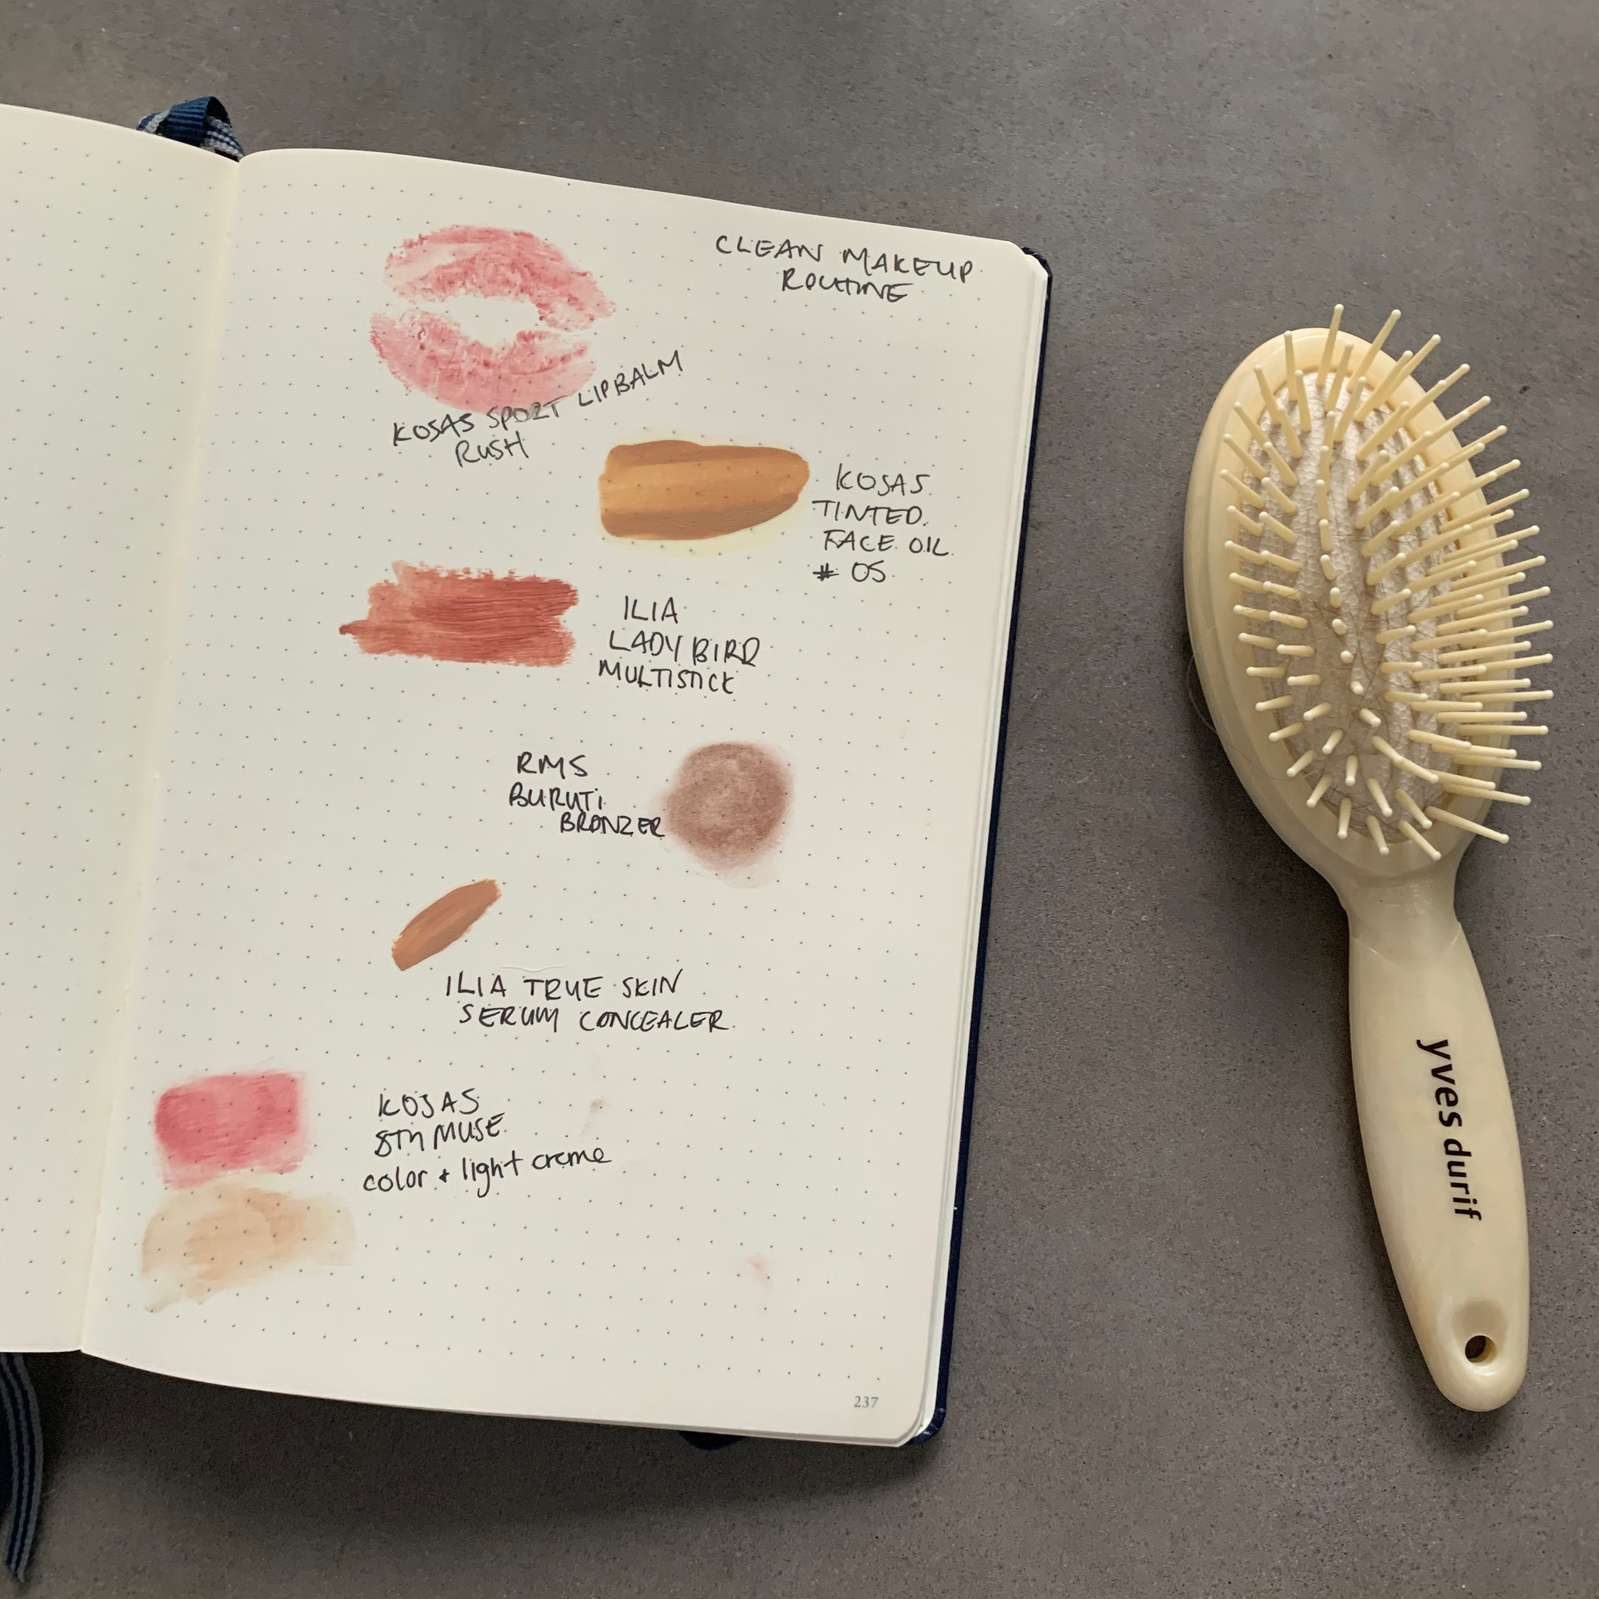 CLEAN MAKEUP
ROUTINE
KOSAS SPORT LIPBALM
RUSH
KOSAS
TINTED
FACE OIL
# 05
ILIA
LADY BIRD
MULTISTICK
RMS
BURUTI
BRONZER
ILIA TRUE SKIN
SERUM CONCEALER
KOSAS
8TH MUSE
color + light creme
237
yves durif